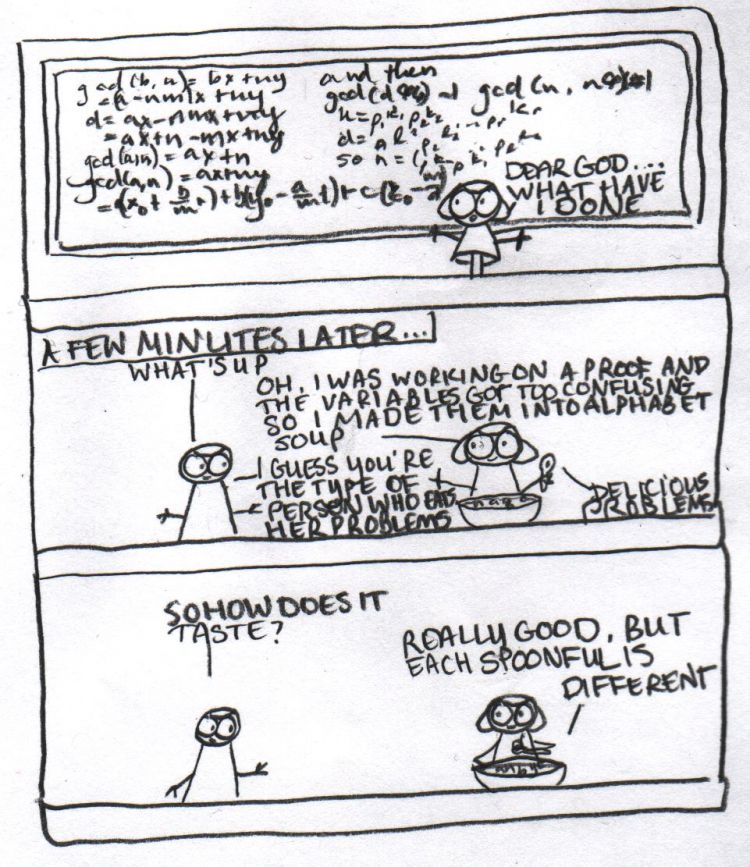 gcd(b,n)= bx+ny
and then
= (a-nm)x+ny
d= ax-nmx+ny
= ax+n-mx+ny
gcd(a,n) = ax+n
gcd(a,n) = ax+ny
so n =
DEAR GOD....
WHAT HAVE
I DONE
A FEW MINUTES LATER...
WHAT'S UP
OH, I WAS WORKING ON A PROOF AND
THE VARIABLES GOT TOO CONFUSING
SO I MADE THEM INTO ALPHABET
SOUP
I GUESS YOU'RE
THE TYPE OF
PERSON WHO EATS
HER PROBLEMS
DELICIOUS
PROBLEMS
SO HOW DOES IT
TASTE?
REALLY GOOD, BUT
EACH SPOONFUL IS
DIFFERENT